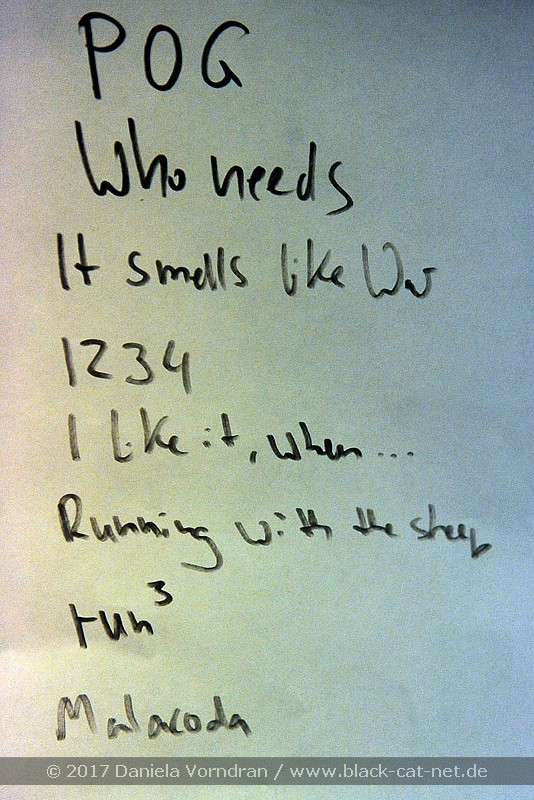 POG
Who needs
It smells like War
1234
I like it, when...
Running with the sheep
run³
Malacoda
© 2017 Daniela Vorndran / www.black-cat-net.de